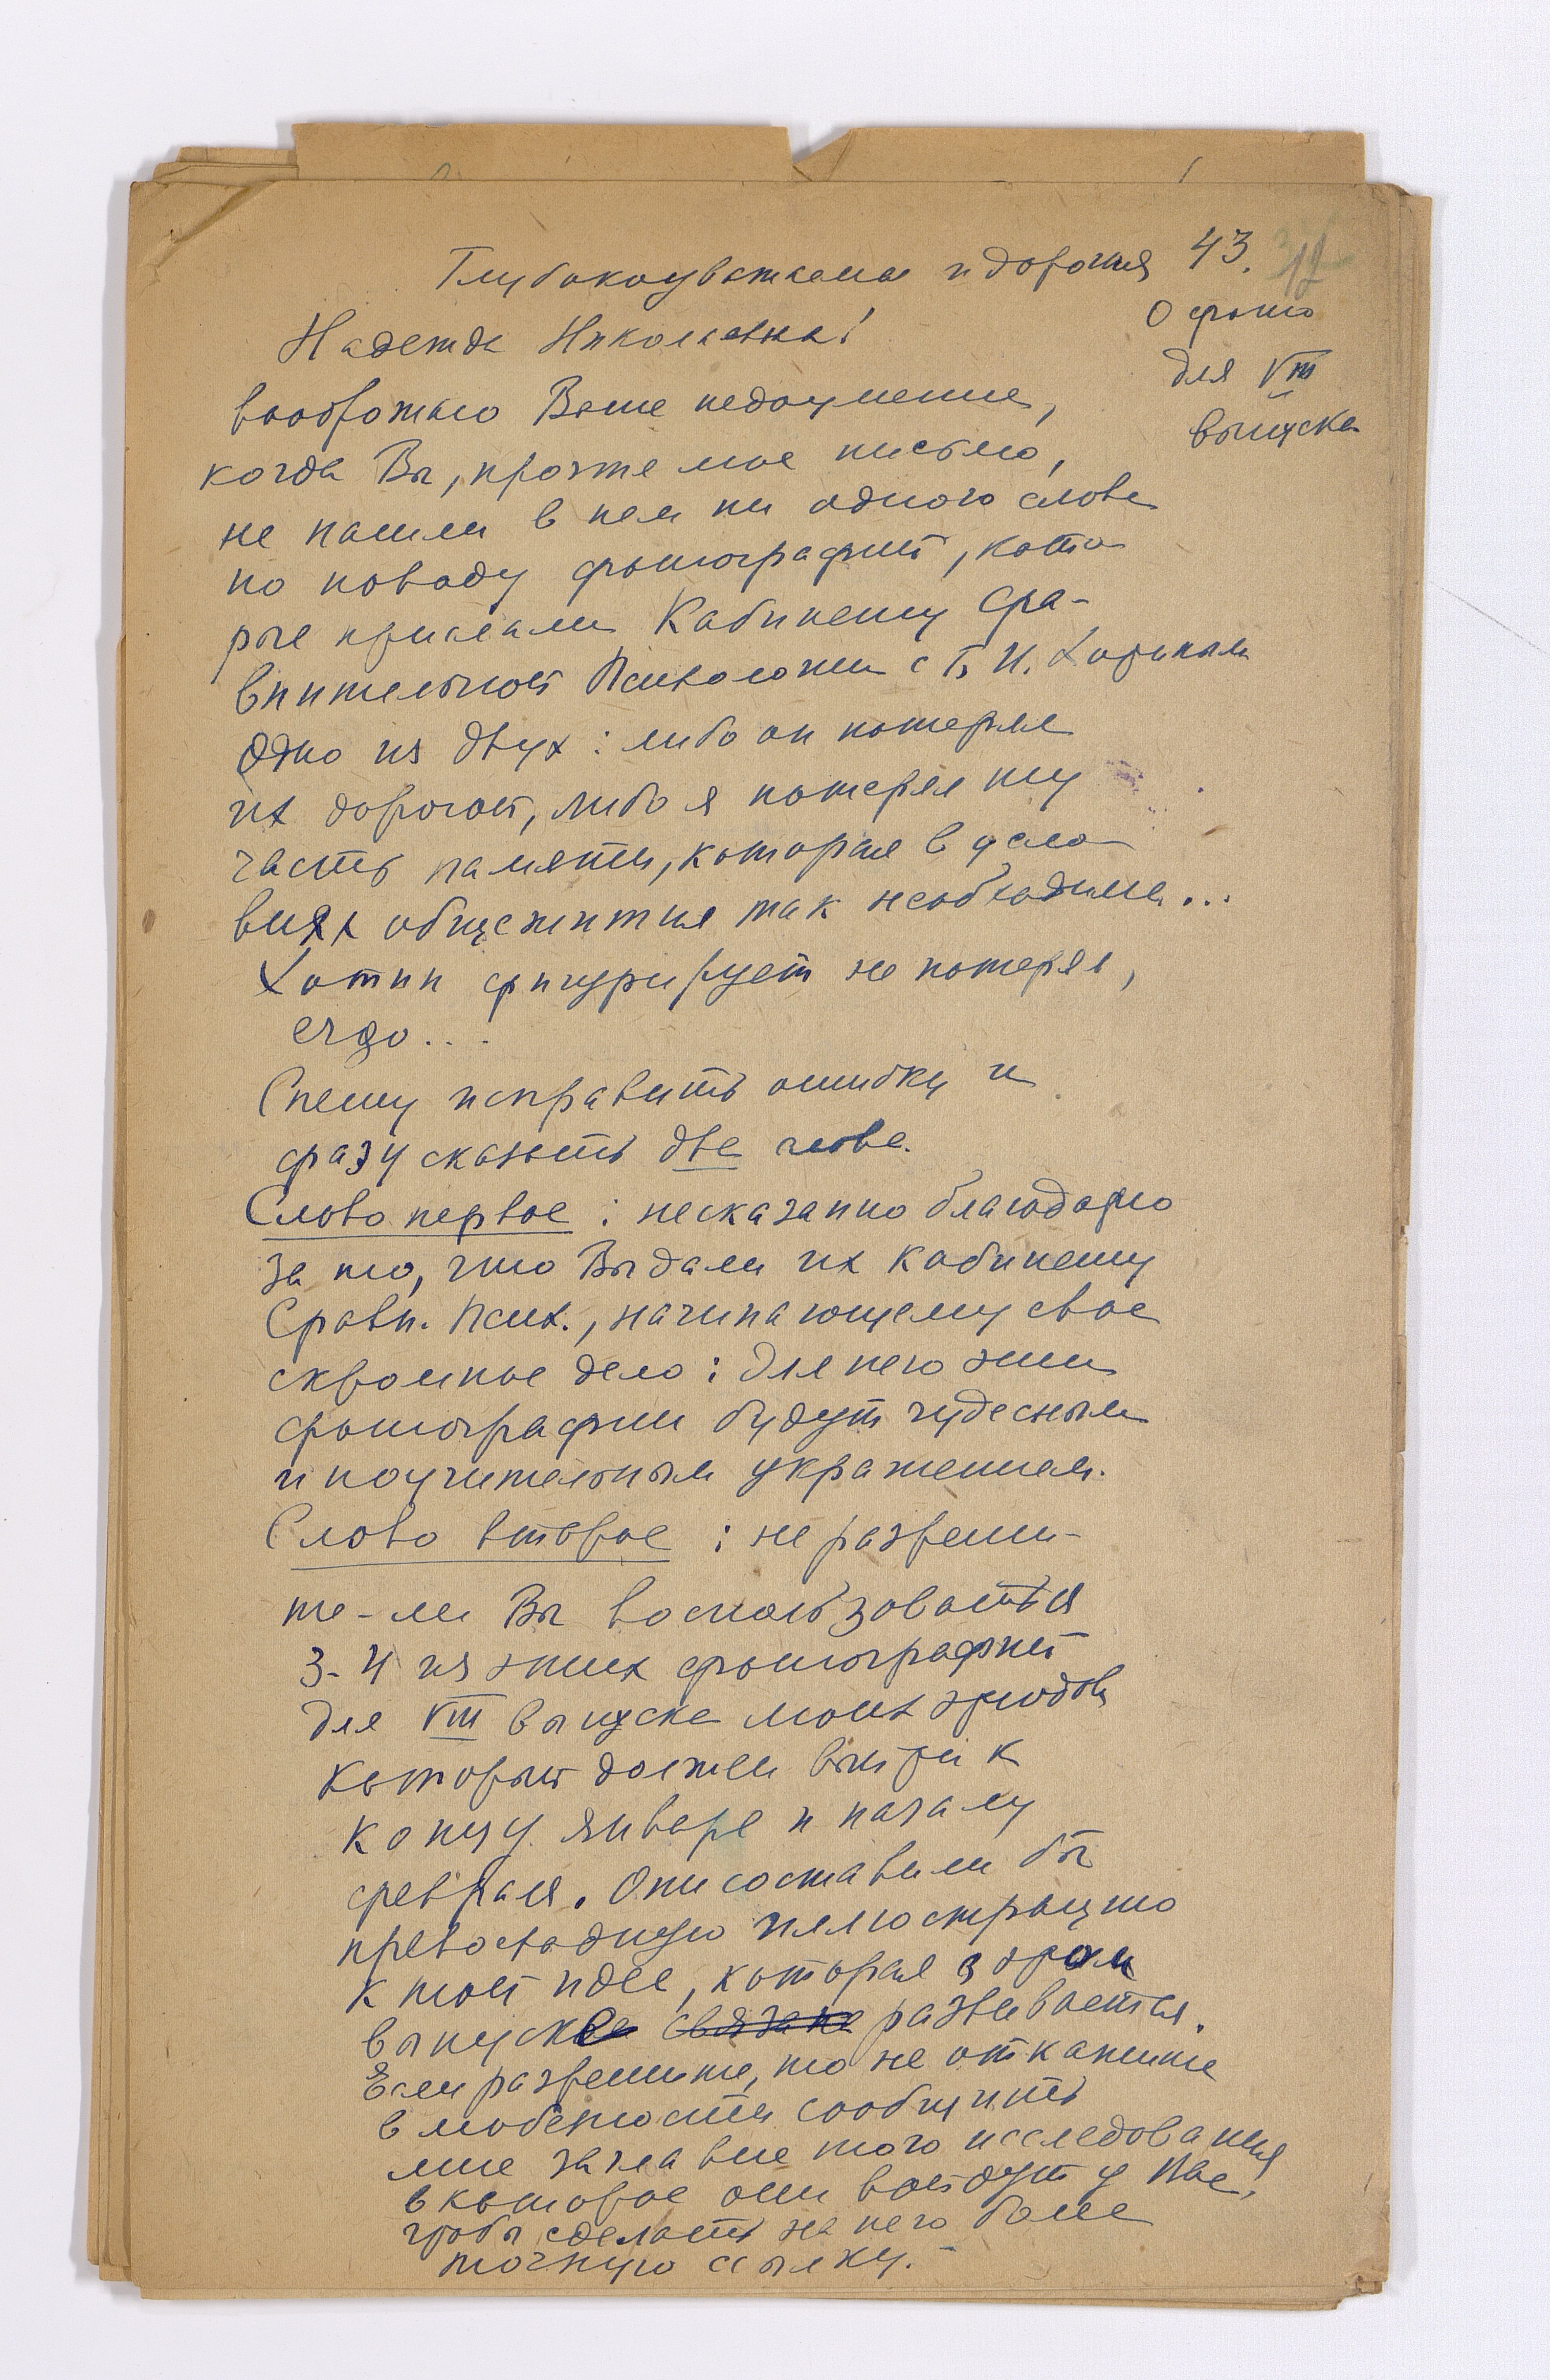 43.
Глубокоуважаемая и дорогая
О фото
для VIII
выпуска
Надежда Николаевна!
воображаю Ваше недоумение,
когда Вы, прочтя мое письмо,
не нашли в нем ни одного слова
по поводу фотографий, кото
рые прислали Кабинету Сра-
внительной Психологии с Б. И. Хотиным
Одно из двух: либо он потерял
их дорогой, либо я потерял ту
часть памяти, которая в усло
виях общежития так необходима...
Хотин фигурирует не потерял,
ergo...
Спешу исправить ошибку и
сразу сказать два слова.
Слово первое: несказанно благодарю
за то, что Вы дали их Кабинету
Сравн. Псих., начинающему свое
скромное дело: для него эти
фотографии будут чудесным
и поучительным украшением.
Слово второе: не разреши-
те-ли Вы воспользоваться
3-4 из этих фотографий
для VIII выпуска моих этюдов
который должен выйти к
концу января и началу
февраля. Они составили бы
превосходную иллюстрацию
к той идее, которая в этом
выпуске связана развивается.
Если разрешите, то не откажите
в любезности сообщить
мне заглавие того исследования
в которое они войдут у Вас,
чтобы сделать на него более
точную ссылку.-